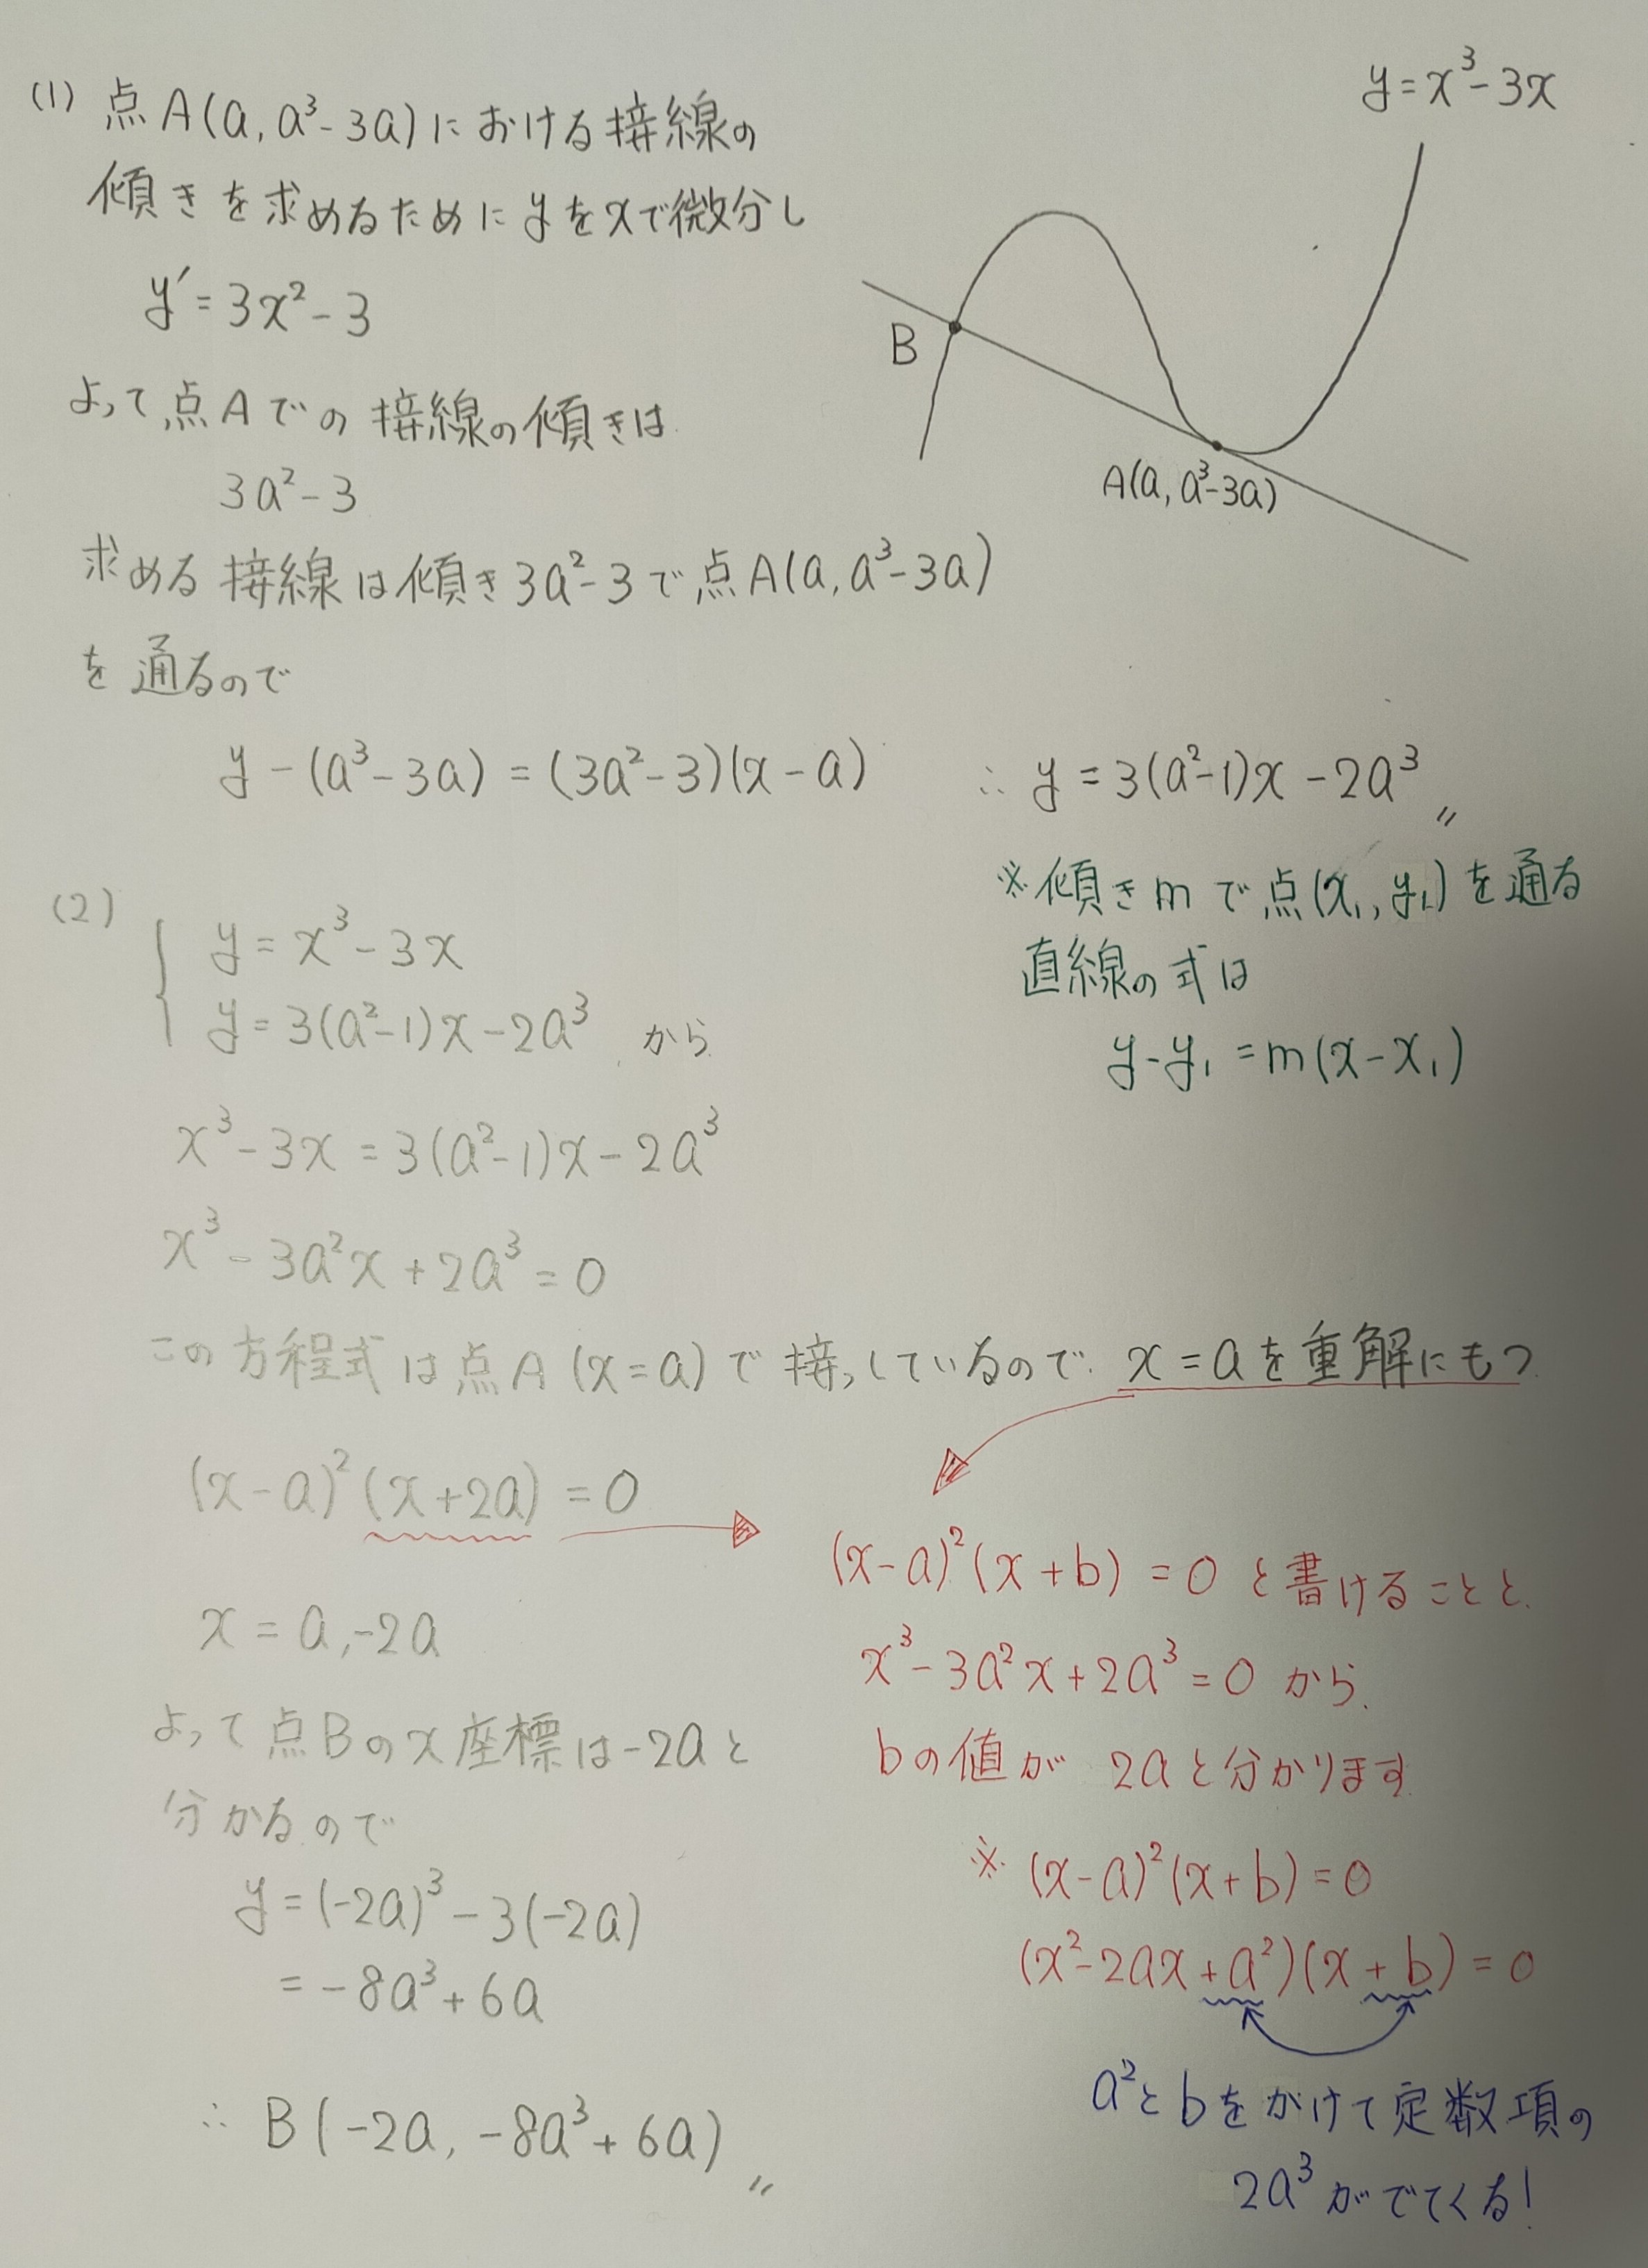 (1) 点A(a, a³-3a)における接線の
傾きを求めるためにyをxで微分し
y' = 3x² - 3
よって点Aでの接線の傾きは
3a² - 3
求める接線は傾き3a²-3で点A(a, a³-3a)
を通るので
y - (a³ - 3a) = (3a² - 3)(x - a)
∴ y = 3(a²-1)x - 2a³ 〃
y = x³ - 3x
B
A(a, a³-3a)
※傾きmで点(x₁, y₁)を通る
直線の式は
y - y₁ = m(x - x₁)
(2)
y = x³ - 3x
y = 3(a²-1)x - 2a³ から
x³ - 3x = 3(a²-1)x - 2a³
x³ - 3a²x + 2a³ = 0
この方程式は点A (x=a)で接しているので x = aを重解にもつ
(x-a)²(x+2a) = 0
x = a, -2a
よって点Bのx座標は-2aと
分かるので
y = (-2a)³ - 3(-2a)
= -8a³ + 6a
∴ B(-2a, -8a³ + 6a) 〃
(x-a)²(x+b) = 0 と書けることと
x³ - 3a²x + 2a³ = 0 から
bの値が 2aと分かります
※ (x-a)²(x+b) = 0
(x² - 2ax + a²)(x + b) = 0
a²とbをかけて定数項の
2a³がでてくる!